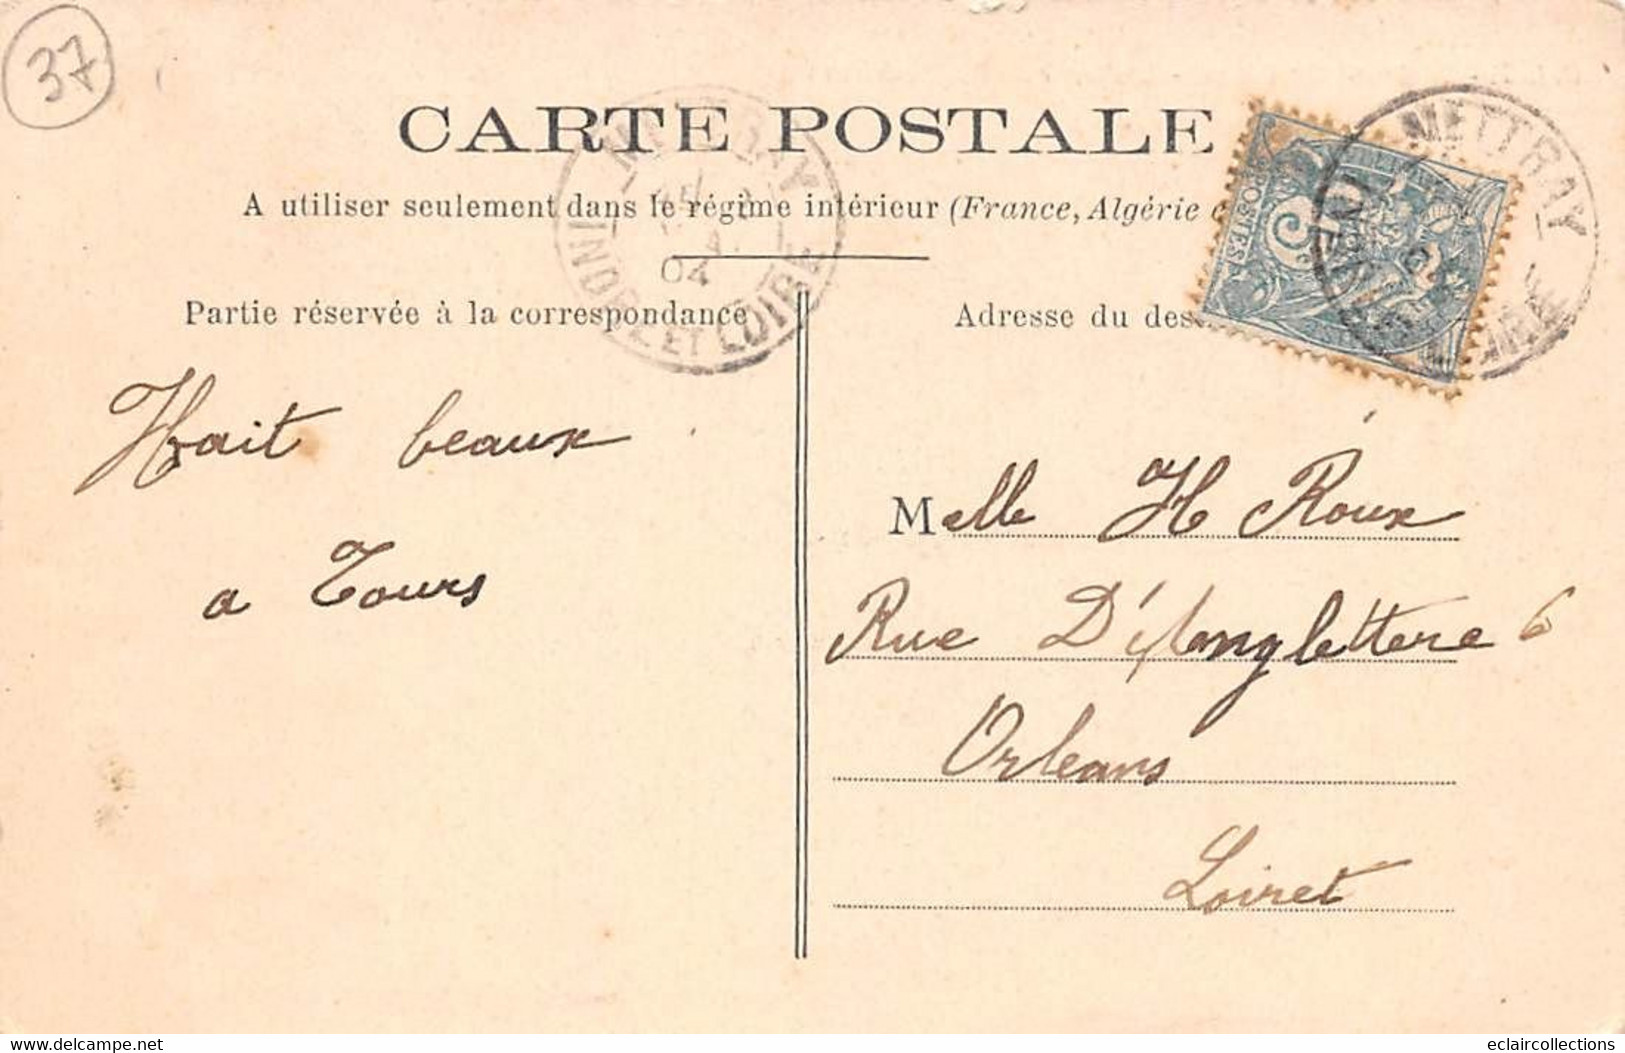 37
CARTE POSTALE
METTRAY
A utiliser seulement dans le régime intérieur (France, Algérie
POSTES
5
04
INDRE ET LOIRE
Partie réservée à la correspondance
Adresse du des
Hait beaux
a Tours
Melle H Roux
Rue D'Anglettere 6
Orleans
Loiret
delcampe.net
eclaircollections